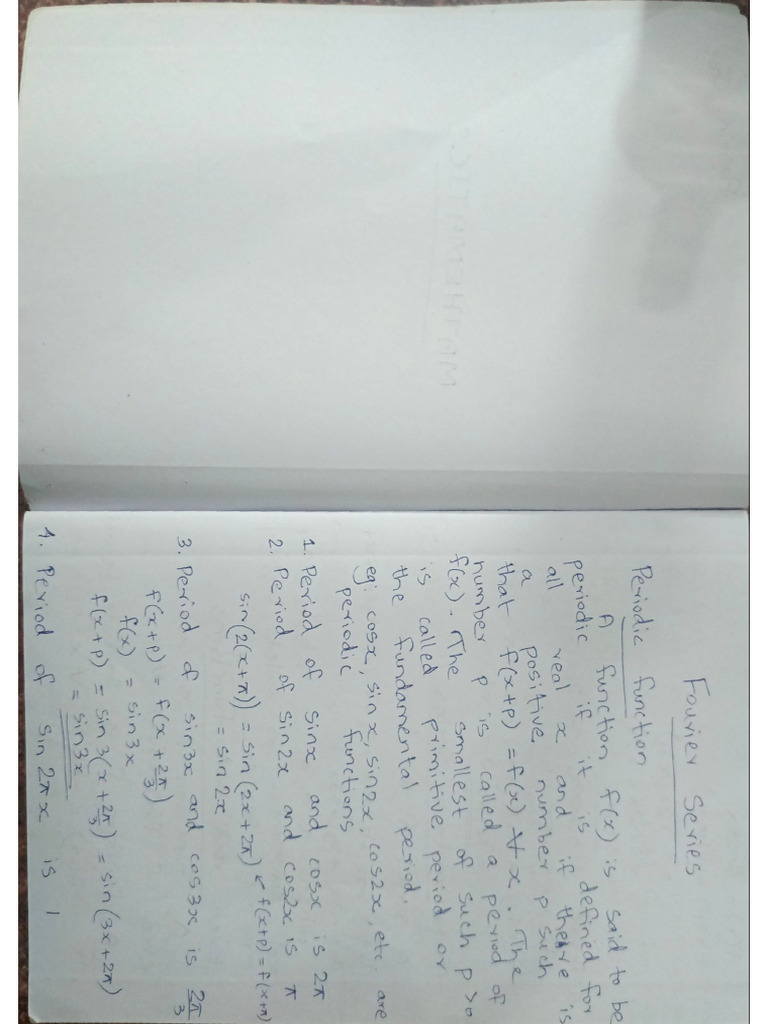 Fourier Series
Periodic function
A function f(x) is said to be
periodic if it is defined for
all real x and if there is
a positive number p such
that f(x+p) = f(x) ∀ x. The
number p is called a period of
f(x). The smallest of such p>0
is called primitive period or
the fundamental period.
eg: cosx, sinx, sin2x, cos2x, etc. are
periodic functions
1. Period of sinx and cosx is 2π
2. Period of sin2x and cos2x is π
sin(2(x+π)) = sin(2x+2π) ↙ f(x+p) = f(x+π)
= sin2x
3. Period of sin3x and cos3x is 2π/3
f(x+p) = f(x + 2π/3)
f(x) = sin3x
f(x+p) = sin3(x + 2π/3) = sin(3x+2π)
= sin3x
4. Period of sin2πx is 1